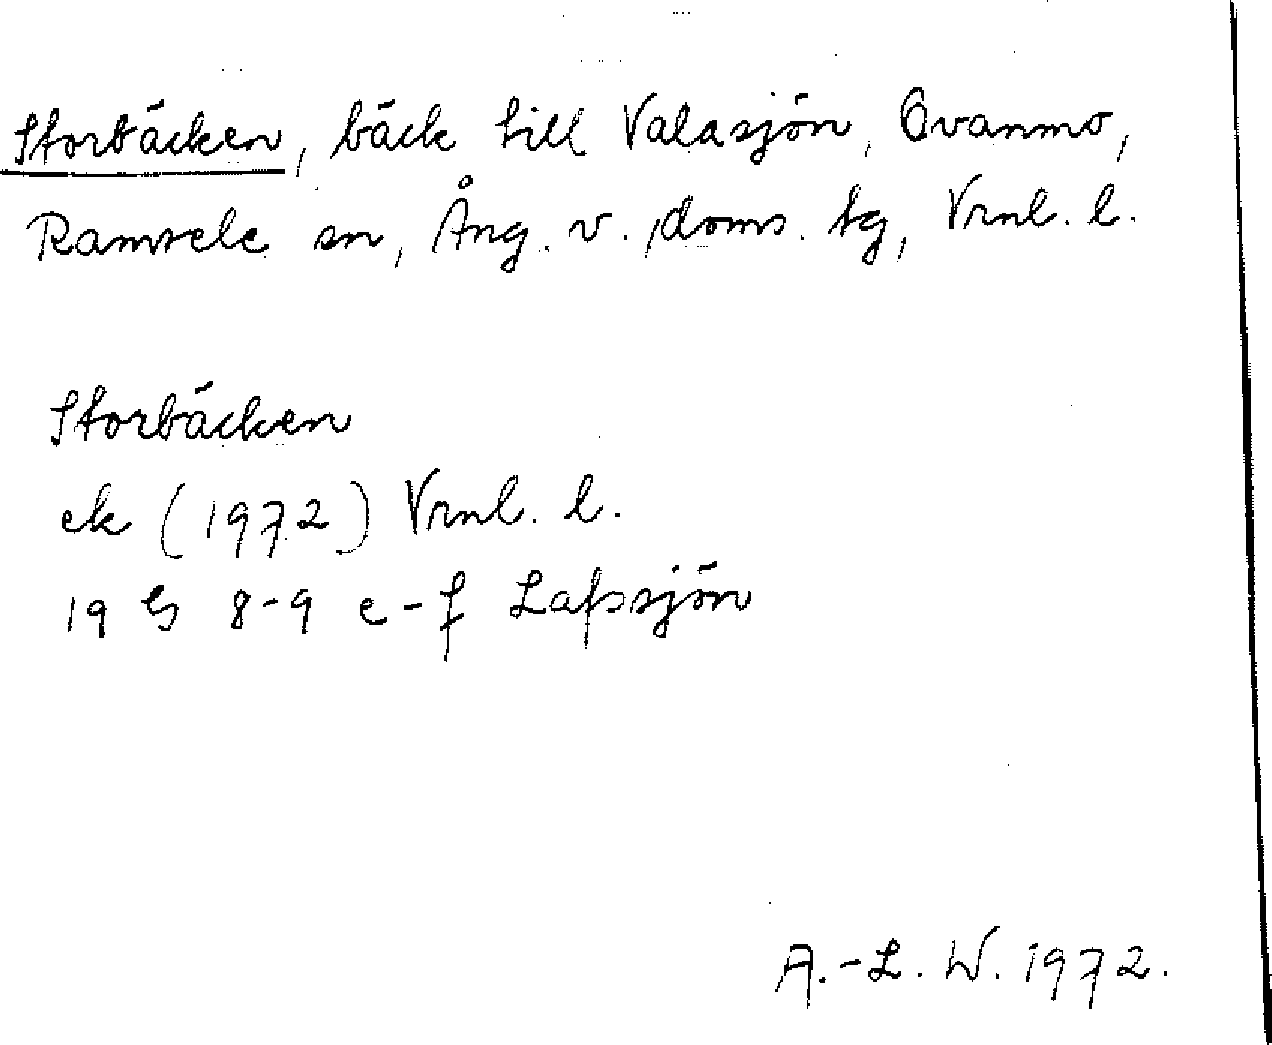 Storbäcken, bäck till Valasjön, Ovanmo,
Ramsele sn, Ång. v. doms. tg, Vrnl. l.
Storbäcken
ek (1972) Vrnl. l.
19 G 8-9 e-f Lafssjön
A.-L. W. 1972.